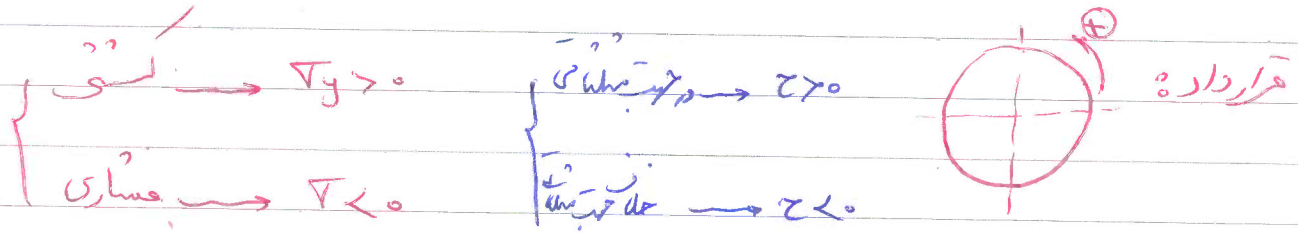 قرارداد:
⊕
در جهت مثلثاتی → τ>0
خلاف جهت مثلثاتی → τ<0
کششی → σy>0
فشاری → σ<0